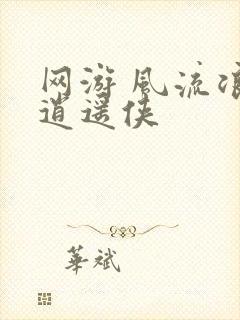 网游风流
逍遥侠
華斌